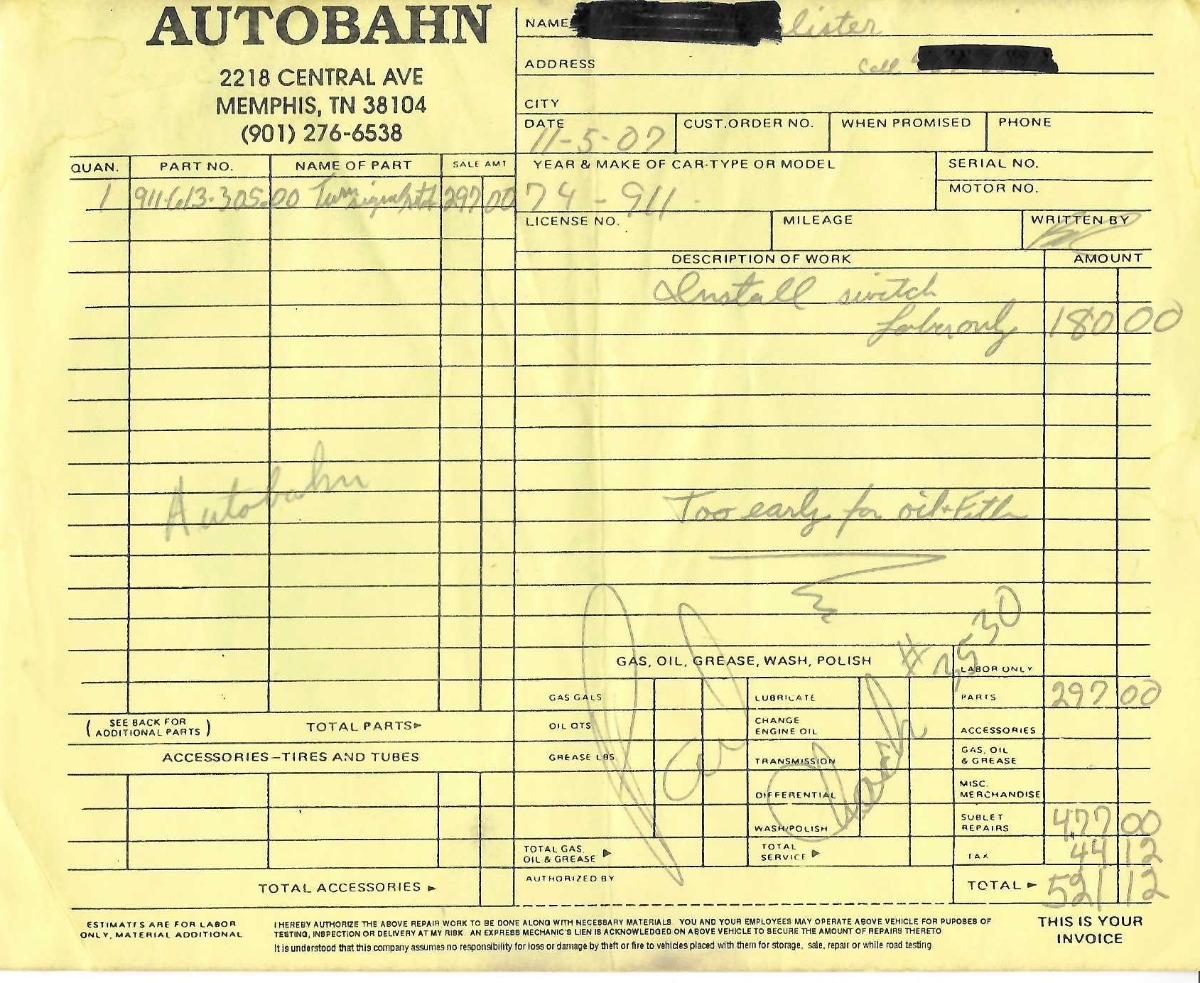 AUTOBAHN
2218 CENTRAL AVE
MEMPHIS, TN 38104
(901) 276-6538
NAME lister
ADDRESS Call
CITY
DATE 11-5-07
CUST.ORDER NO.
WHEN PROMISED
PHONE
QUAN. PART NO. NAME OF PART SALE AMT
1 911-613-305-00 Turn signal 297 00
YEAR & MAKE OF CAR-TYPE OR MODEL
74 - 911
SERIAL NO.
MOTOR NO.
LICENSE NO.
MILEAGE
WRITTEN BY
DESCRIPTION OF WORK AMOUNT
Install switch
Labor only 180 00
Autobahn
Too early for oil + Filter
Pd Check #3530
GAS, OIL, GREASE, WASH, POLISH
LABOR ONLY
GAS GALS LUBRICATE PARTS 297 00
OIL QTS. CHANGE ENGINE OIL ACCESSORIES
GREASE LBS. TRANSMISSION GAS, OIL & GREASE
DIFFERENTIAL MISC. MERCHANDISE
WASH/POLISH SUBLET REPAIRS 477 00
TOTAL GAS, OIL & GREASE TOTAL SERVICE TAX 44 12
AUTHORIZED BY TOTAL 521 12
( SEE BACK FOR ADDITIONAL PARTS ) TOTAL PARTS
ACCESSORIES–TIRES AND TUBES
TOTAL ACCESSORIES
ESTIMATES ARE FOR LABOR
ONLY, MATERIAL ADDITIONAL
I HEREBY AUTHORIZE THE ABOVE REPAIR WORK TO BE DONE ALONG WITH NECESSARY MATERIALS. YOU AND YOUR EMPLOYEES MAY OPERATE ABOVE VEHICLE FOR PUPOSES OF
TESTING, INSPECTION OR DELIVERY AT MY RISK. AN EXPRESS MECHANIC'S LIEN IS ACKNOWLEDGED ON ABOVE VEHICLE TO SECURE THE AMOUNT OF REPAIRS THERETO
It is understood that this company assumes no responsibility for loss or damage by theft or fire to vehicles placed with them for storage, sale, repair or while road testing.
THIS IS YOUR
INVOICE